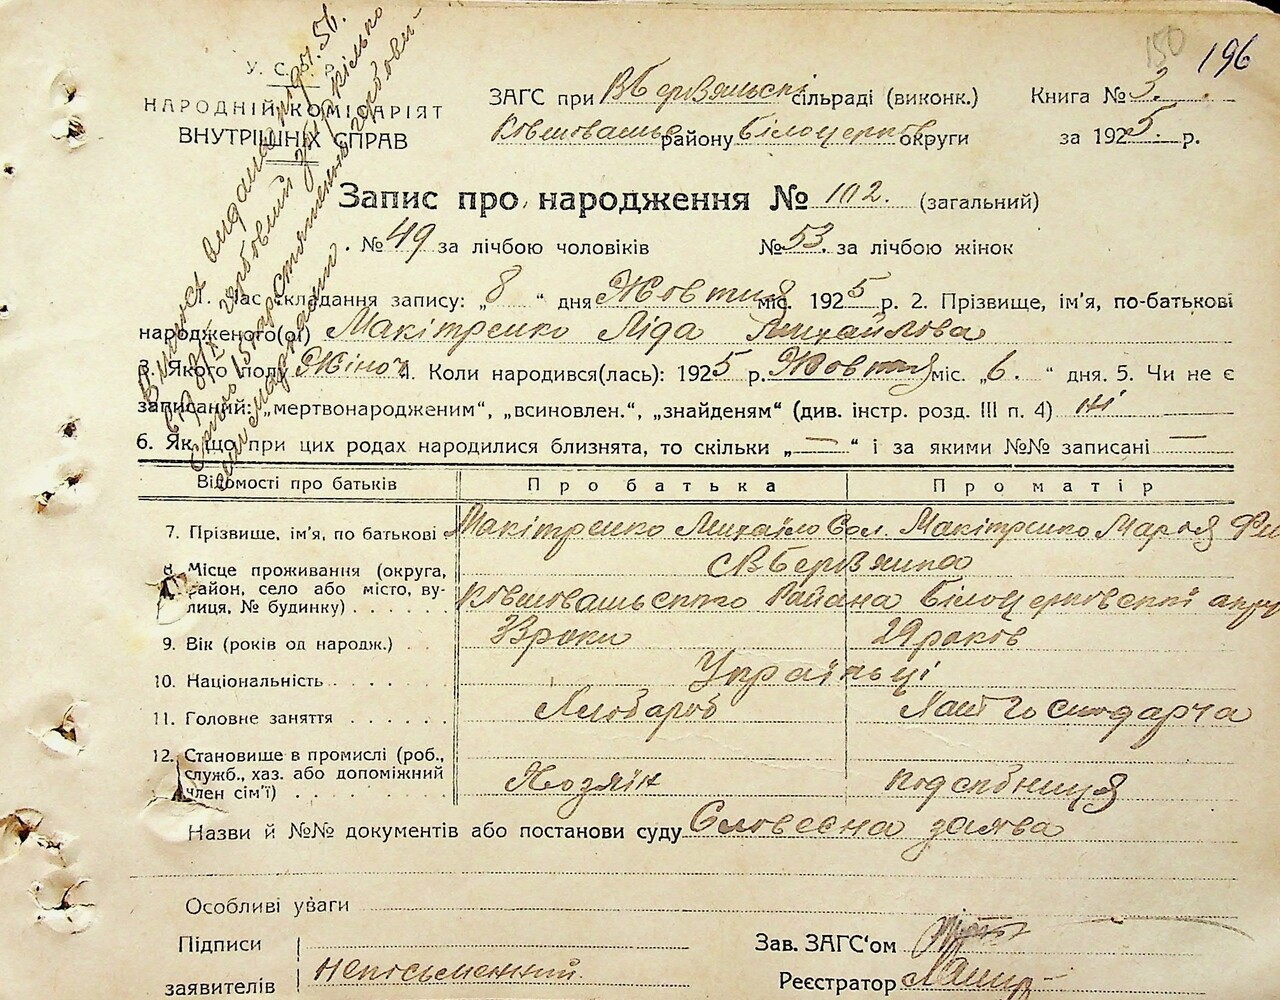 150 196
У. С. Р. Р.
НАРОДНІЙ КОМІСАРІЯТ
ВНУТРІШНІХ СПРАВ
ЗАГС при сільраді (виконк.) Книга № 3.
району Білоцерків округи за 1925 р.
Запис про народження № 102. (загальний)
№ 49 за лічбою чоловіків № 53. за лічбою жінок
1. Час складання запису: „ 8 “ дня Жовтня міс. 1925 р. 2. Прізвище, ім'я, по-батькові
народженого(ої) Макітренко Ліда Михайлова
3. Якого полу Жіноч 4. Коли народився(лась): 1925 р. Жовтня міс. „ 6. “ дня. 5. Чи не є
записаний: „мертвонародженим“, „всиновлен.“, „знайденям“ (див. інстр. розд. III п. 4) ні
6. Як що при цих родах народилися близнята, то скільки „ — “ і за якими №№ записані —
Відомості про батьків Про батька Про матір
7. Прізвище, ім'я, по батькові Макітренко Михайло Сол. Макітренко Марья
8. Місце проживання (округа,
район, село або місто, ву-
лиця, № будинку) Района Білоцерковскої
9. Вік (років од народж.) 33 роки 29 років
10. Національність Українці
11. Головне заняття Хлібароб Хат Господарча
12. Становище в промислі (роб.,
служб., хаз. або допоміжний
член сім'ї) Хозяїн подсобниця
Назви й №№ документів або постанови суду Словесна заява
Особливі уваги
Підписи Зав. ЗАГС'ом
заявителів неписьменний. Реєстратор